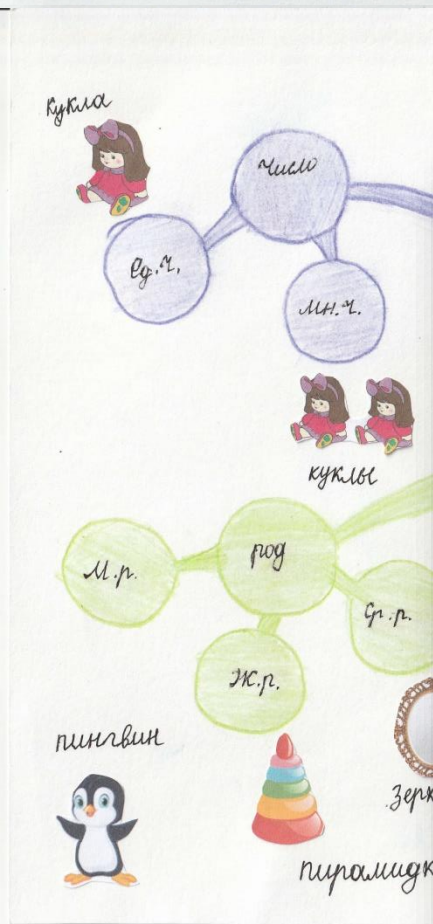 кукла
Число
Ед.ч.
Мн.ч.
куклы
род
М.р.
Ср.р.
Ж.р.
пингвин
Зерк
пирамидк